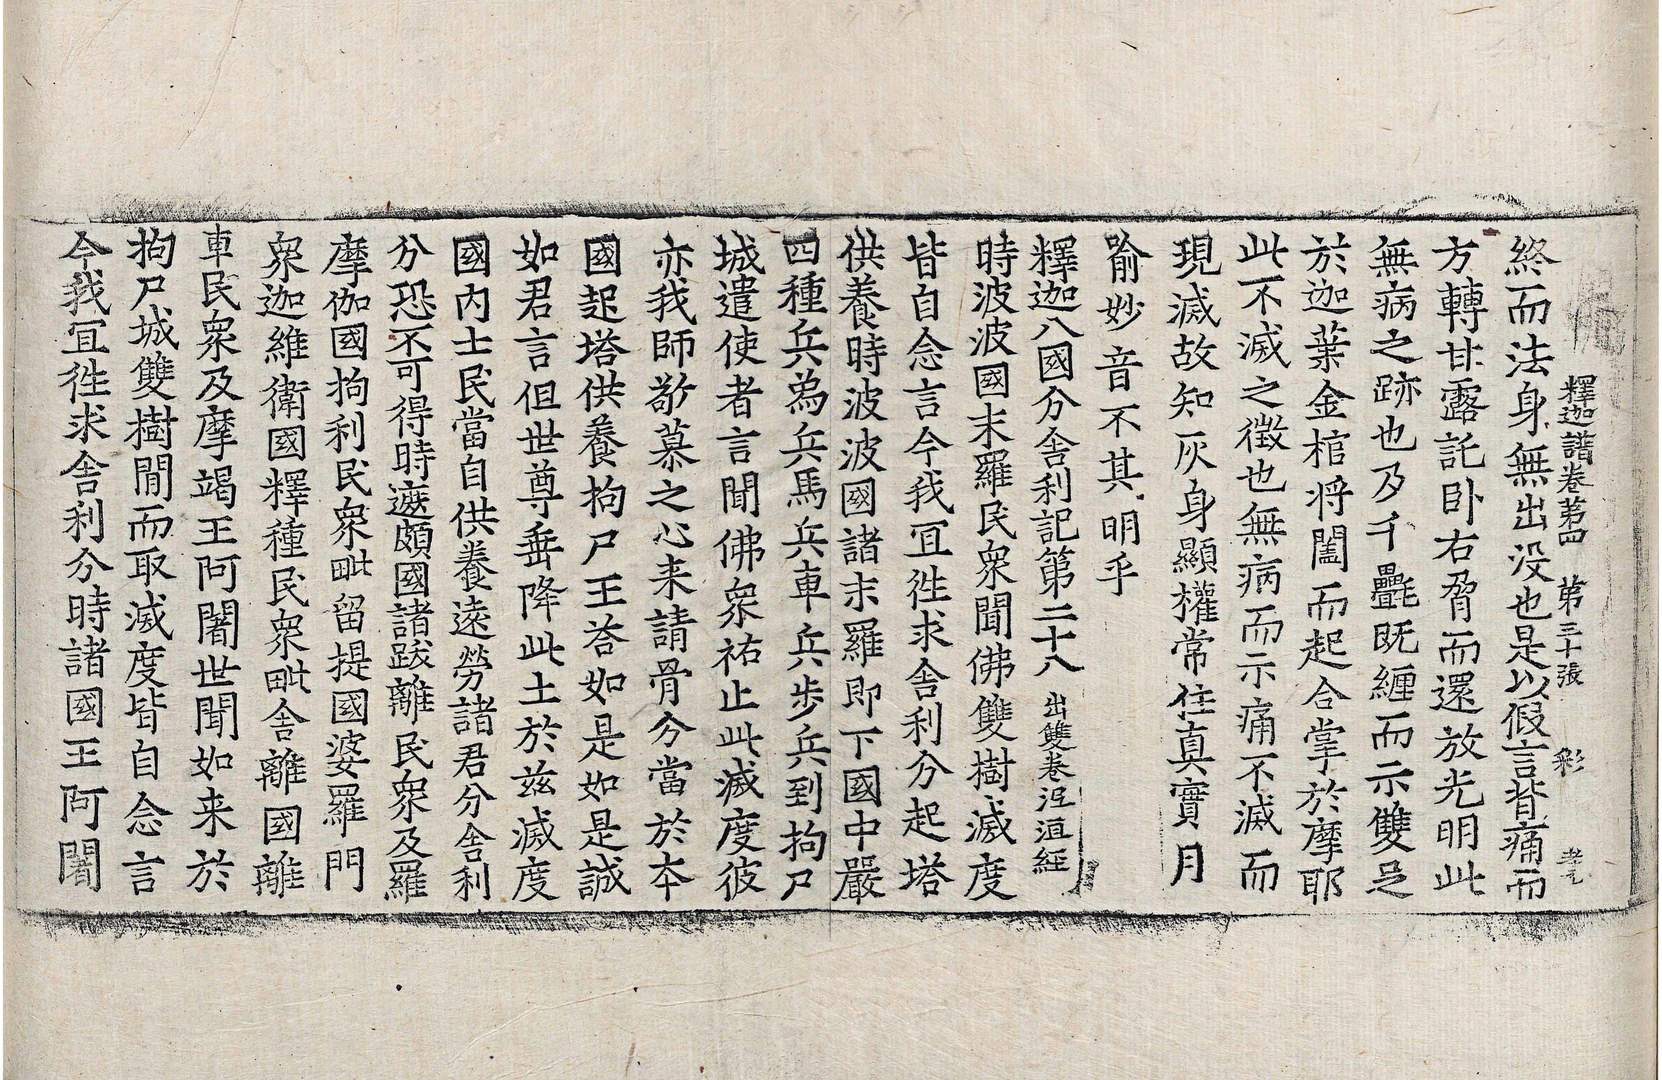 釋迦譜卷第四 第三十張 彩
終而法身無出没也是以假言背痛而
方轉甘露託卧右脅而還放光明此
無病之跡也及千㲲既纏而示雙足
於迦葉金棺將闔而起合掌於摩耶
此不滅之徵也無病而示痛不滅而
現滅故知灰身顯權常住真實月
喻妙音不其明乎
釋迦八國分舍利記第二十八 出雙卷泥洹經
時波波國末羅民衆聞佛雙樹滅度
皆自念言今我宜徃求舍利分起塔
供養時波波國諸末羅即下國中嚴
四種兵為兵馬兵車兵步兵到拘尸
城遣使者言聞佛衆祐止此滅度彼
亦我師敬慕之心来請骨分當於本
國起塔供養拘尸王荅如是如是誠
如君言但世尊垂降此土於兹滅度
國內士民當自供養遠勞諸君分舍利
分恐不可得時遮頗國諸跋離民衆及羅
摩伽國拘利民衆毗留提國婆羅門
衆迦維衛國釋種民衆毗舍離國離
車民衆及摩竭王阿闍世聞如来於
拘尸城雙樹間而取滅度皆自念言
今我宜徃求舍利分時諸國王阿闍